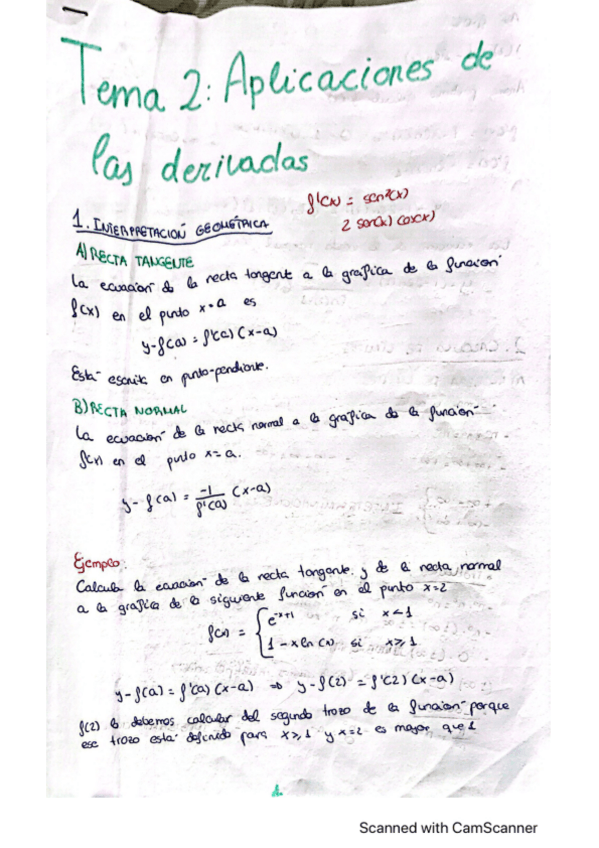 Tema 2: Aplicaciones de
las derivadas
f'(x) = sen²(x)
2 sen(x) cos(x)
1. INTERPRETACIÓN GEOMÉTRICA
A) RECTA TANGENTE
La ecuación de la recta tangente a la gráfica de la función
f(x) en el punto x=a es
y-f(a) = f'(a) (x-a)
Está escrita en punto-pendiente.
B) RECTA NORMAL
La ecuación de la recta normal a la gráfica de la función
f(x) en el punto x=a.
y-f(a) = -1/f'(a) (x-a)
Ejemplo:
Calcula la ecuación de la recta tangente y de la recta normal
a la gráfica de la siguiente función en el punto x=2
f(x) = { e^-x+1 si x<1
1-x ln(x) si x≥1
y-f(a) = f'(a) (x-a) => y-f(2) = f'(2) (x-a)
f(2) la debemos calcular del segundo trozo de la función porque
ese trozo está definido para x≥1 y x=2 es mayor que 1
1.
Scanned with CamScanner